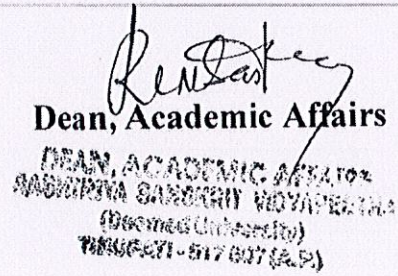 Dean, Academic Affairs
DEAN, ACADEMIC AFFAIRS
RASHTRIYA SANSKRIT VIDYAPEETHA
(Deemed University)
TIRUPATI - 517 007 (A.P.)